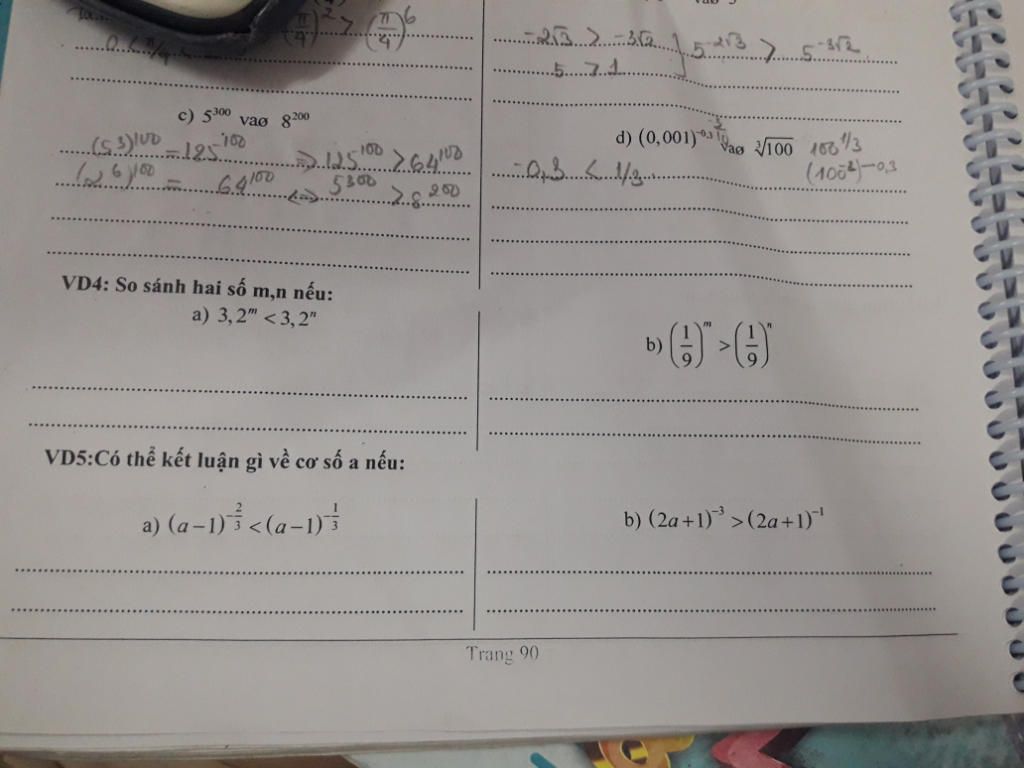 (π/4)² > (π/4)⁶
0 < π/4 <
-2√3 > -3√2 } 5^-2√3 > 5^-3√2
5 > 1
c) 5³⁰⁰ vaø 8²⁰⁰
(5³)¹⁰⁰ = 125¹⁰⁰ ⇒ 125¹⁰⁰ > 64¹⁰⁰
(2⁶)¹⁰⁰ = 64¹⁰⁰ ⇔ 5³⁰⁰ > 8²⁰⁰
d) (0,001)^-0,3 vaø ∛100 100^1/3
-0,3 < 1/3 (100^-2)^-0,3
VD4: So sánh hai số m,n nếu:
a) 3,2ᵐ < 3,2ⁿ
b) (1/9)ᵐ > (1/9)ⁿ
VD5:Có thể kết luận gì về cơ số a nếu:
a) (a−1)^-2/3 < (a−1)^-1/3
b) (2a+1)⁻³ > (2a+1)⁻¹
Trang 90